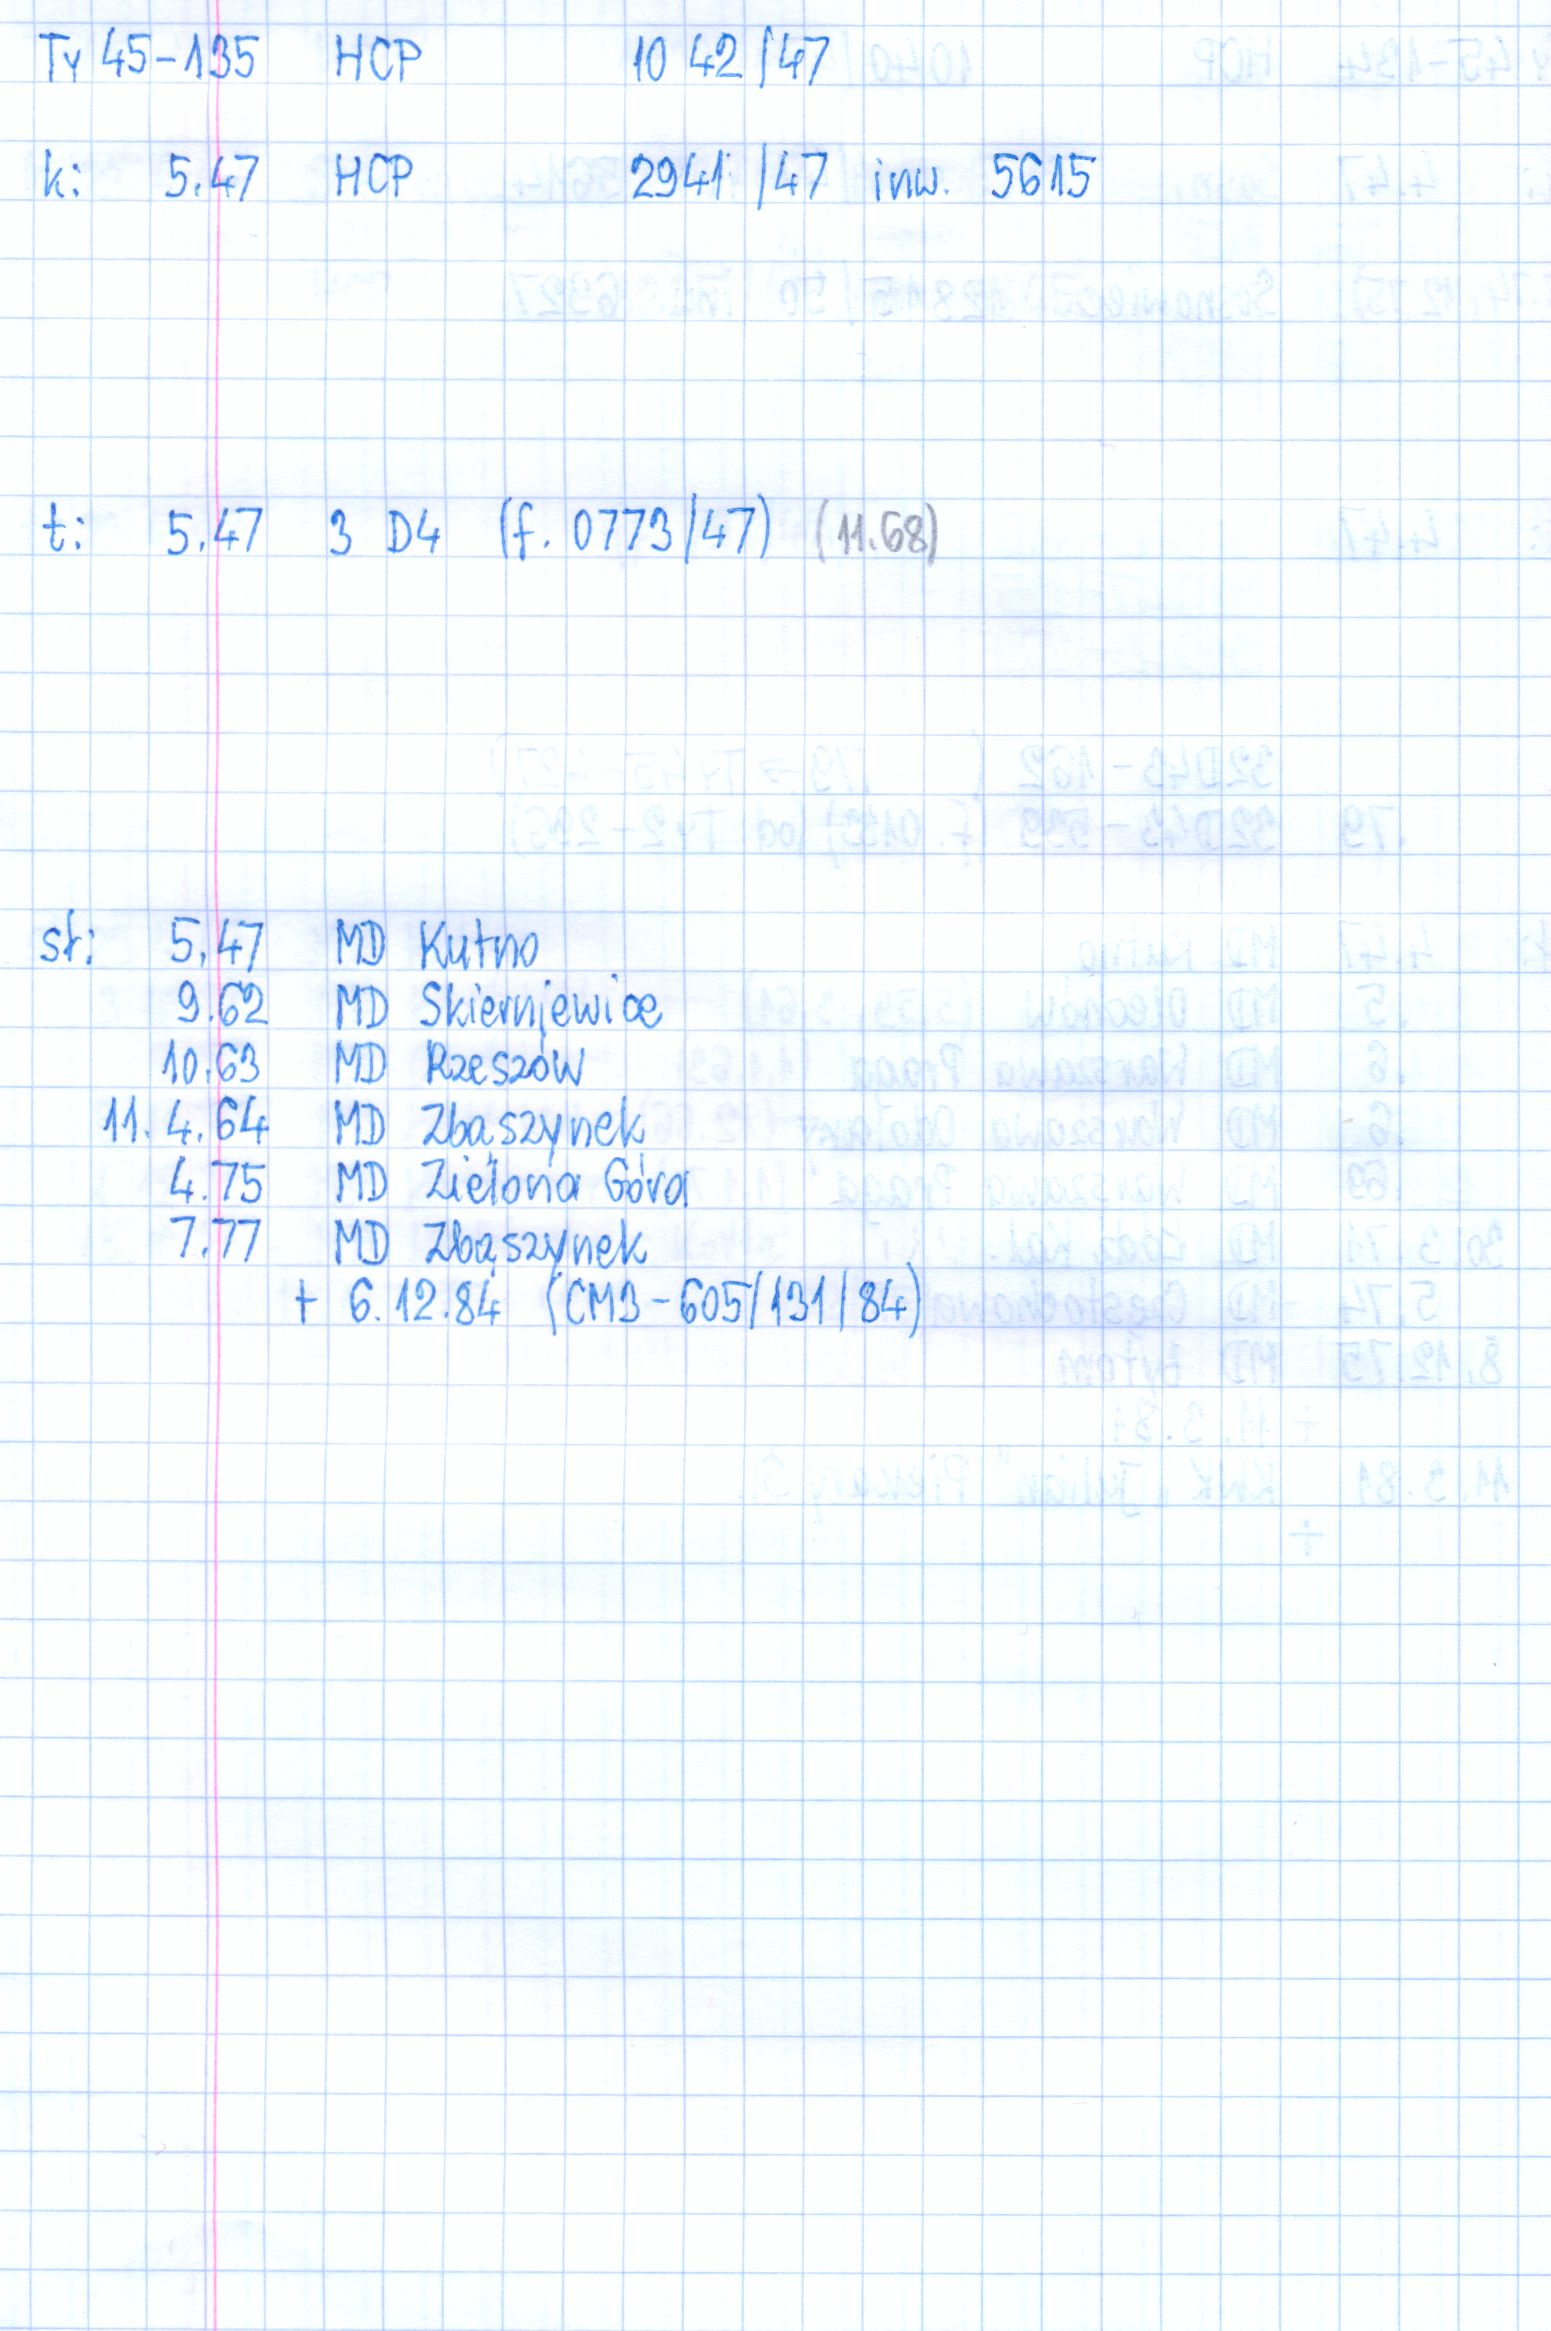 Ty 45-135 HCP 1042/47
k: 5.47 HCP 2941/47 inw. 5615
t: 5.47 3 D4 (f. 0773/47) (11.68)
st: 5.47 MD Kutno
9.62 MD Skierniewice
10.63 MD Rzeszów
11.4.64 MD Zbąszynek
4.75 MD Zielona Góra
7.77 MD Zbąszynek
+ 6.12.84 (CM3-605/131/84)